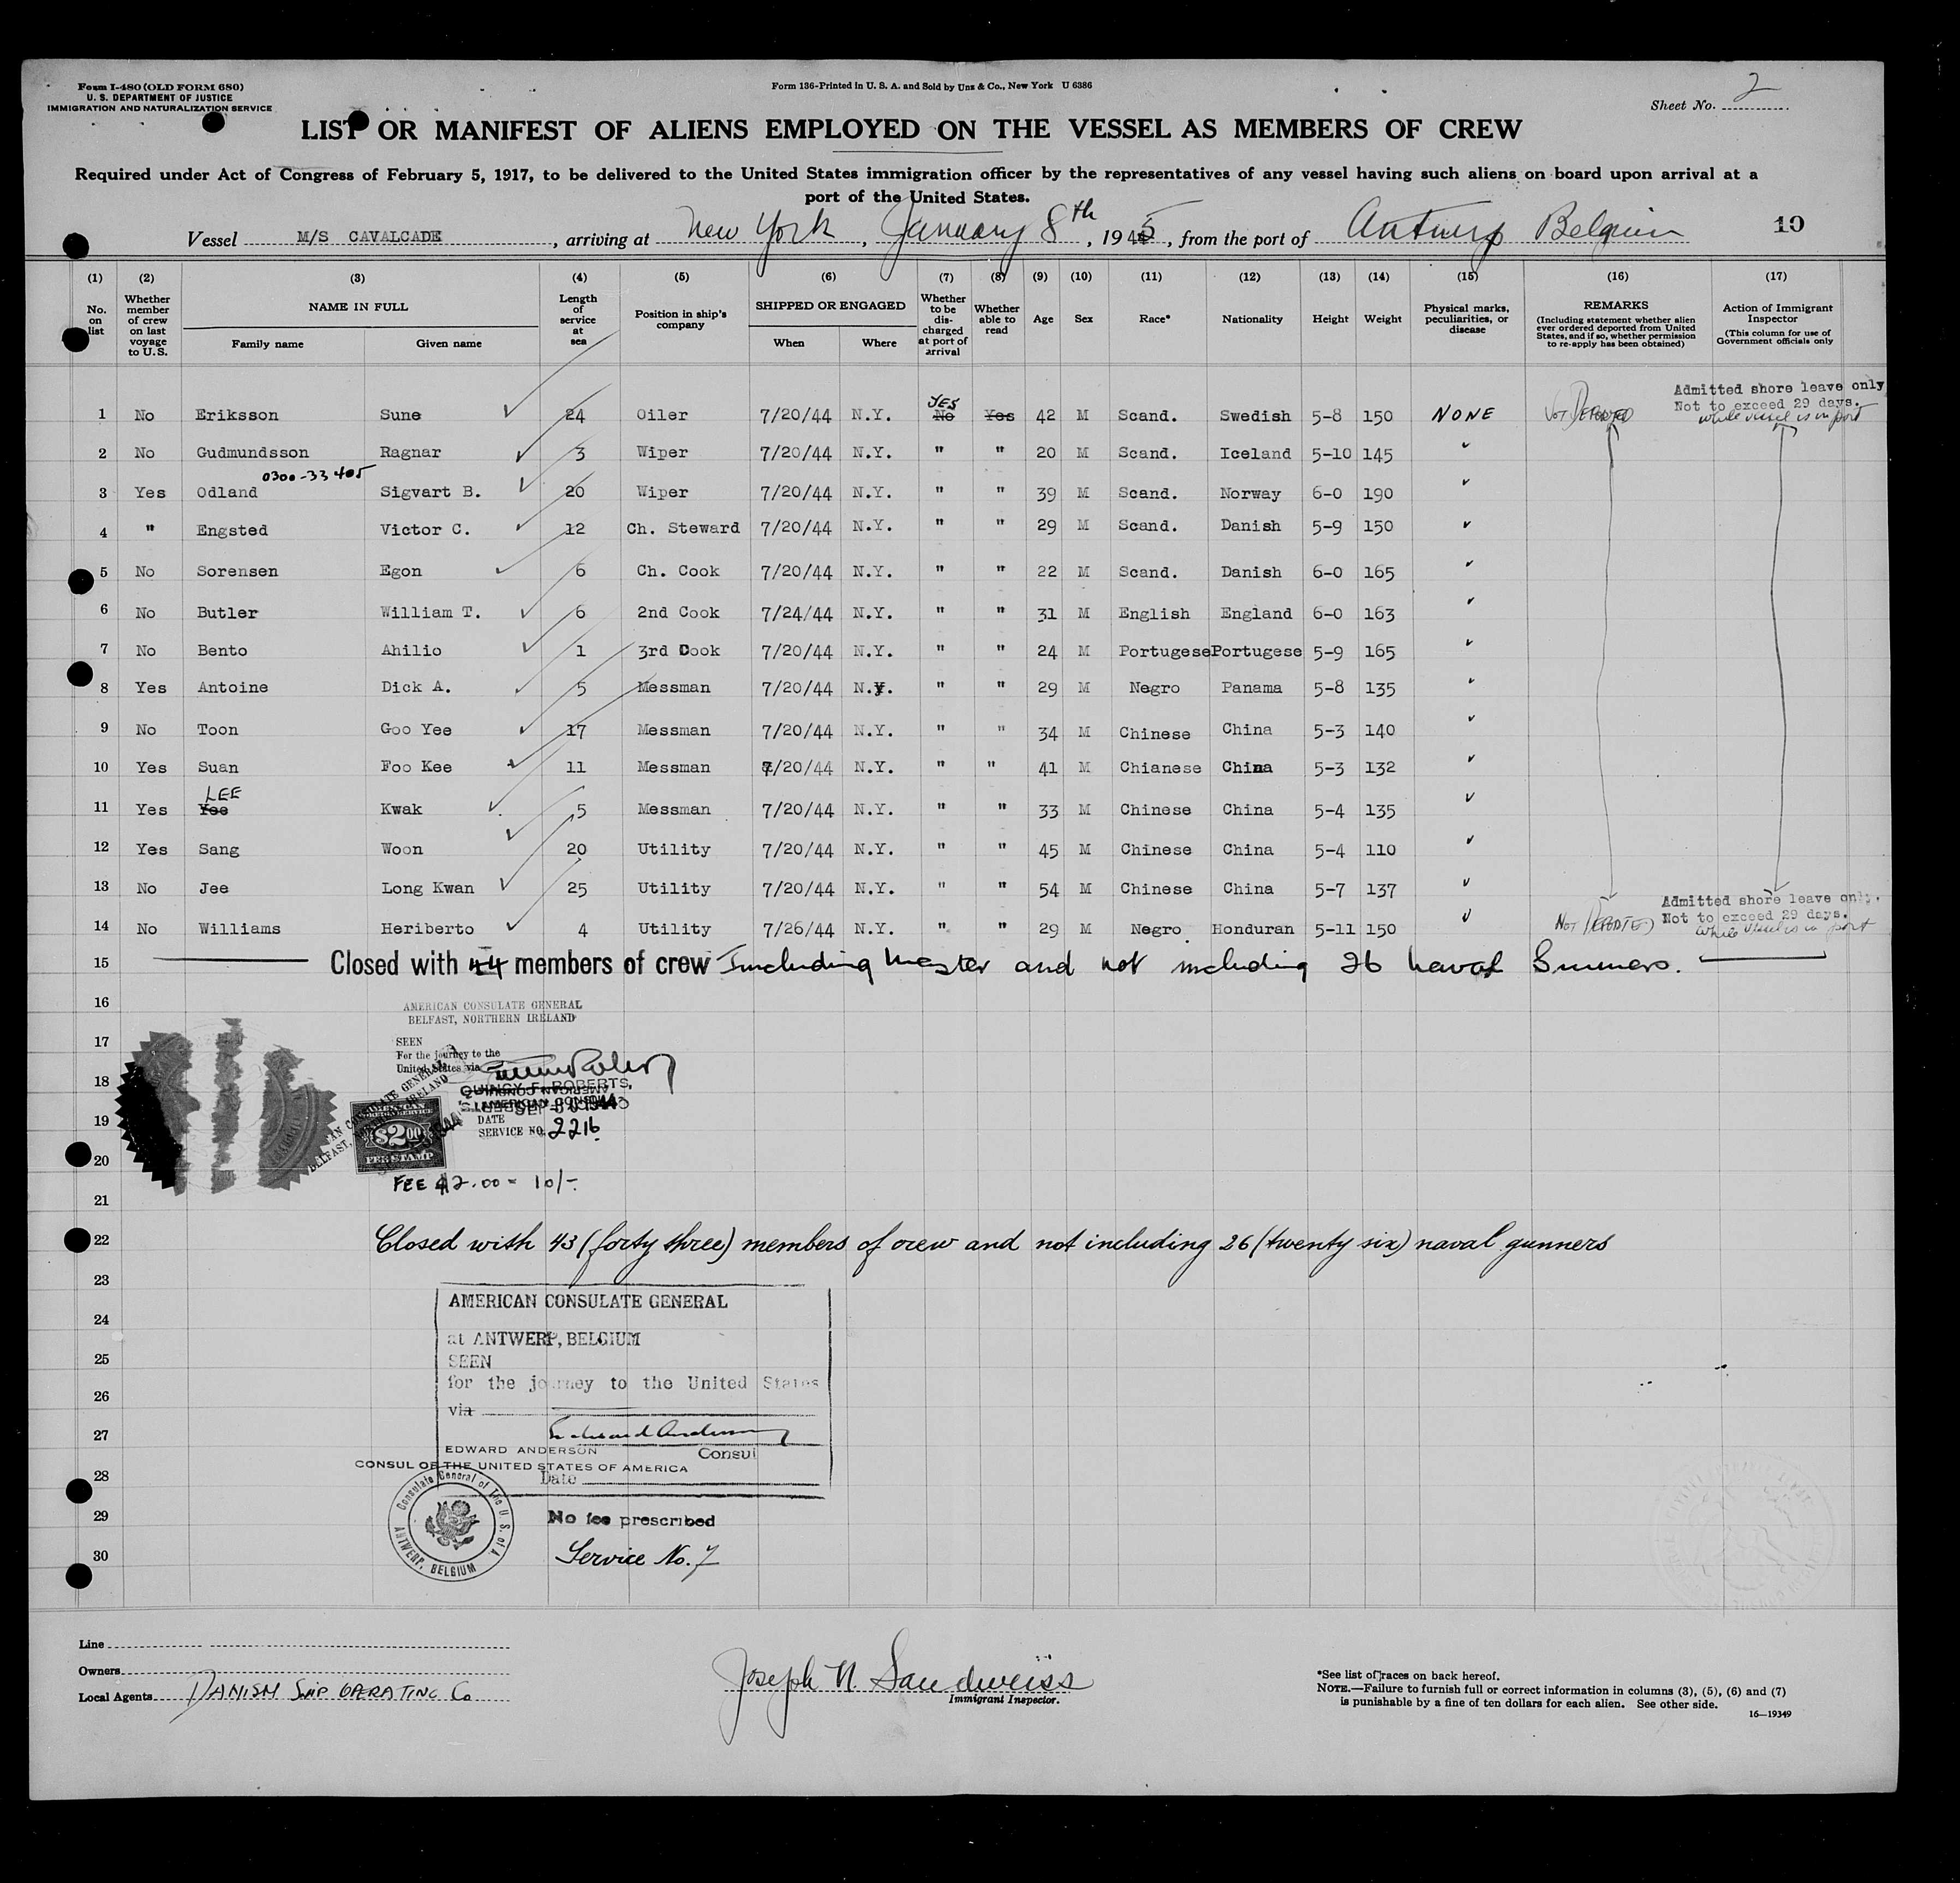 Form I-480 (OLD FORM 680)
U. S. DEPARTMENT OF JUSTICE
IMMIGRATION AND NATURALIZATION SERVICE
Form 136-Printed in U. S. A. and Sold by Unz & Co., New York U 6386
Sheet No. 2
LIST OR MANIFEST OF ALIENS EMPLOYED ON THE VESSEL AS MEMBERS OF CREW
Required under Act of Congress of February 5, 1917, to be delivered to the United States immigration officer by the representatives of any vessel having such aliens on board upon arrival at a
port of the United States.
Vessel M/S CAVALCADE, arriving at New York, January 8th, 1945, from the port of Antwerp Belgium 10
(1) (2) (3) (4) (5) (6) (7) (8) (9) (10) (11) (12) (13) (14) (15) (16) (17)
No. on list Whether member of crew on last voyage to U. S. NAME IN FULL Family name Given name Length of service at sea Position in ship's company SHIPPED OR ENGAGED When Where Whether to be discharged at port of arrival Whether able to read Age Sex Race* Nationality Height Weight Physical marks, peculiarities, or disease REMARKS (Including statement whether alien ever ordered deported from United States, and if so, whether permission to re-apply has been obtained) Action of Immigrant Inspector (This column for use of Government officials only
Admitted shore leave only
Not to exceed 29 days.
while vessel is in port
YES
1 No Eriksson Sune 24 Oiler 7/20/44 N.Y. No Yes 42 M Scand. Swedish 5-8 150 NONE Not Deported
2 No Gudmundsson Ragnar 3 Wiper 7/20/44 N.Y. " " 20 M Scand. Iceland 5-10 145
0300-33405
3 Yes Odland Sigvart B. 20 Wiper 7/20/44 N.Y. " " 39 M Scand. Norway 6-0 190
4 " Engsted Victor C. 12 Ch. Steward 7/20/44 N.Y. " " 29 M Scand. Danish 5-9 150
5 No Sorensen Egon 6 Ch. Cook 7/20/44 N.Y. " " 22 M Scand. Danish 6-0 165
6 No Butler William T. 6 2nd Cook 7/24/44 N.Y. " " 31 M English England 6-0 163
7 No Bento Ahilio 1 3rd Cook 7/20/44 N.Y. " " 24 M Portugese Portugese 5-9 165
8 Yes Antoine Dick A. 5 Messman 7/20/44 N.Y. " " 29 M Negro Panama 5-8 135
9 No Toon Goo Yee 17 Messman 7/20/44 N.Y. " " 34 M Chinese China 5-3 140
10 Yes Suan Foo Kee 11 Messman 7/20/44 N.Y. " " 41 M Chianese China 5-3 132
LEE
11 Yes Yee Kwak 5 Messman 7/20/44 N.Y. " " 33 M Chinese China 5-4 135
12 Yes Sang Woon 20 Utility 7/20/44 N.Y. " " 45 M Chinese China 5-4 110
13 No Jee Long Kwan 25 Utility 7/20/44 N.Y. " " 54 M Chinese China 5-7 137
Admitted shore leave only.
Not to exceed 29 days.
while vessel is in port
14 No Williams Heriberto 4 Utility 7/26/44 N.Y. " " 29 M Negro Honduran 5-11 150 Not Deported
15 Closed with 44 members of crew Including Master and not including 26 Naval Gunners.
16
AMERICAN CONSULATE GENERAL
BELFAST, NORTHERN IRELAND
17
SEEN
For the journey to the
United States via
18
QUINCY F. ROBERTS,
AMERICAN CONSUL
19
DATE
SERVICE NO. 2216
$2.00
PER STAMP
20
FEE $2.00 = 10/-
21
22 Closed with 43 (forty three) members of crew and not including 26 (twenty six) naval gunners
23
AMERICAN CONSULATE GENERAL
24
at ANTWERP, BELGIUM
25
SEEN
for the journey to the United States
26
via
27
EDWARD ANDERSON Consul
CONSUL OF THE UNITED STATES OF AMERICA
28
Date
Consulate General of The U. S. of A.
ANTWERP, BELGIUM
29
No fee prescribed
30
Service No. 7
Line
Owners
Local Agents DANISH SHIP OPERATING Co
Joseph N. Sandweiss
Immigrant Inspector.
*See list of races on back hereof.
NOTE.—Failure to furnish full or correct information in columns (3), (5), (6) and (7)
is punishable by a fine of ten dollars for each alien. See other side.
16—19349